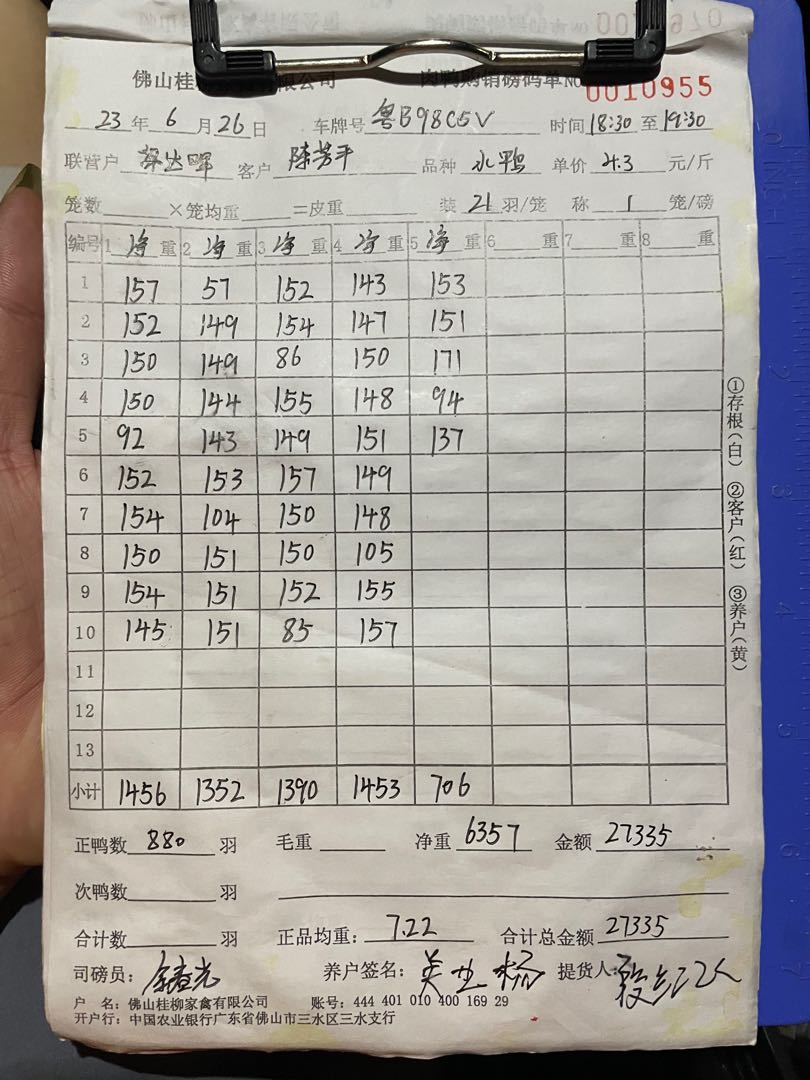 佛山桂柳家禽有限公司 肉鸭购销磅码单 No 0010955
23 年 6 月 26 日 车牌号 粤B98C5V 时间 18:30 至 19:30
联营户 客户 陈芳平 品种 水鸭 单价 4.3 元/斤
笼数 ×笼均重 =皮重 装 21 羽/笼 称 1 笼/磅
编号 1 净 重 2 净 重 3 净 重 4 净 重 5 净 重 6 重 7 重 8 重
1 157 57 152 143 153
2 152 149 154 147 151
3 150 149 86 150 171
4 150 144 155 148 94
5 92 143 149 151 137
6 152 153 157 149
7 154 104 150 148
8 150 151 150 105
9 154 151 152 155
10 145 151 85 157
11
12
13
小计 1456 1352 1390 1453 706
正鸭数 880 羽 毛重 净重 6357 金额 27335
次鸭数 羽
合计数 羽 正品均重: 7.22 合计总金额 27335
司磅员: 养户签名: 提货人:
户 名: 佛山桂柳家禽有限公司 账号: 444 401 010 400 169 29
开户行: 中国农业银行广东省佛山市三水区三水支行
①存根(白) ②客户(红) ③养户(黄)